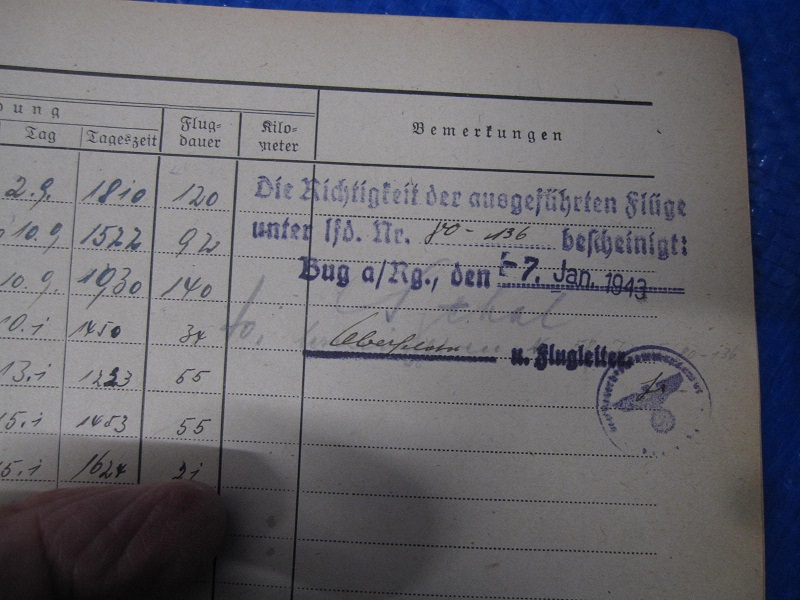 ung
Tag Tageszeit Flug=
dauer Kilo=
meter Bemerkungen
2.9. 1810 120
10.9. 1522 92
10.9. 1030 140
10.i 1450 34
13.i 1223 55
15.i 1453 55
15.i 1624 21
Die Richtigkeit der ausgeführten Flüge
unter lfd. Nr. 80-136 bescheinigt:
Bug a/Rg., den -7. Jan. 1943
u. Flugleiter.